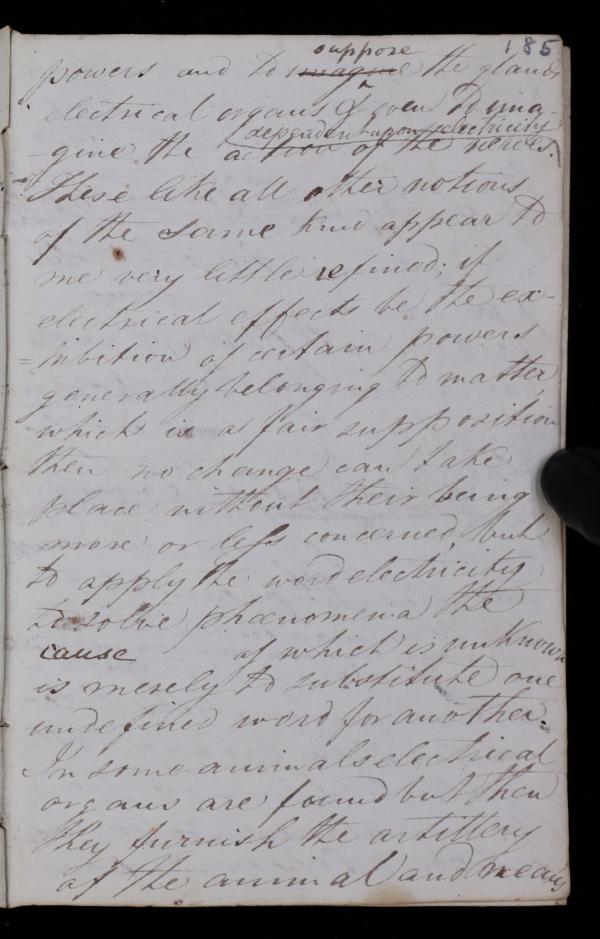 185
suppose
powers and to imagine the glands
electrical organs & even to ima-
dependent upon electricity
-gine the action of the nerves.
These like all other notions
of the same kind appear to
me very little refined; if
electrical effects be the ex-
=hibition of certain powers
generally belonging to matter
which is a fair supposition
then no change can take
place without their being
more or less concerned, but
to apply the word electricity
to solve phœnomena the
cause of which is unknown
is merely to substitute one
undefined word for another.
In some animals electrical
organs are found but then
they furnish the artillery
of the animal and means